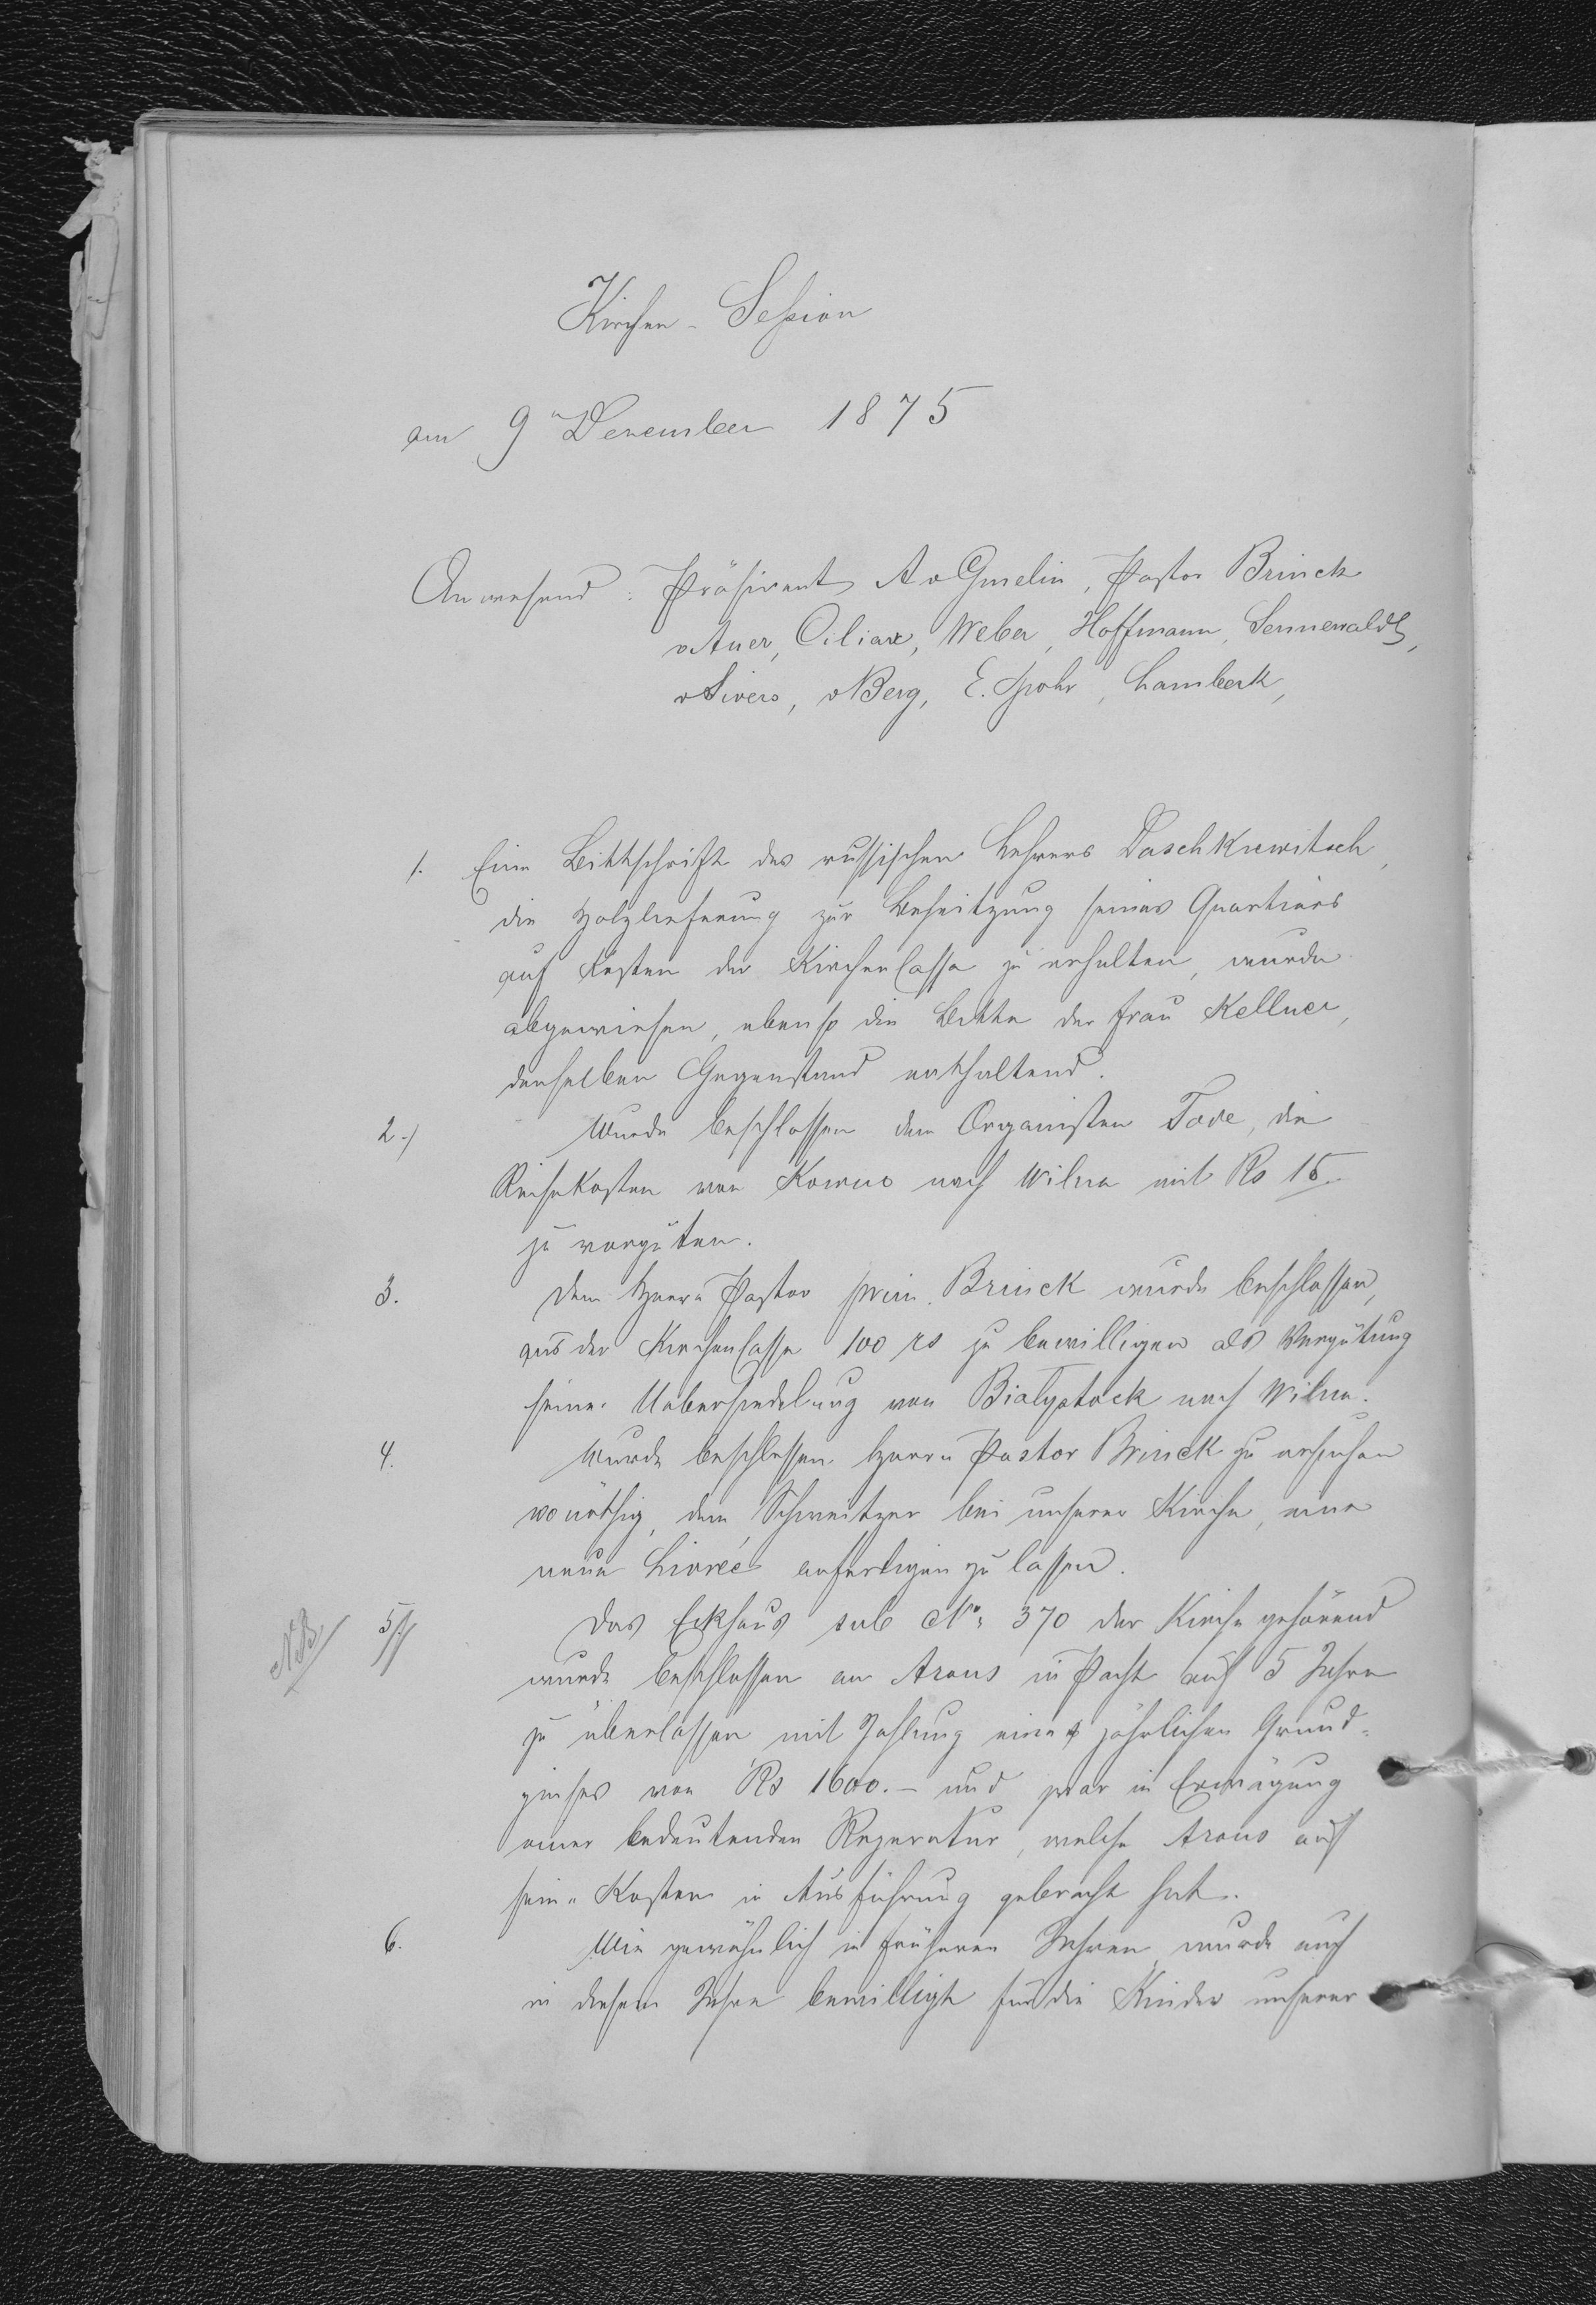 Kirchen-Session
am 9ten December 1875
Anwesend: Präsident A v Gmelin, Pastor Brinck
v Auer, Ciliax, Weber, Hoffmann, Sennewaldt,
v Sivers, v Berg, E. Spohr, Lambeck,
1. Eine Bittschrift des russischen Lehrers Daschkiewitsch,
die Holzlieferung zur Beheitzung seines Quartiers
auf Kosten der Kirchen Cassa zu erhalten, wurde
abgewiesen, ebenso die Bitte der Frau Kellner,
denselben Gegenstand enthaltend.
2.) Wurde beschlossen dem Organisten Tode, die
Reisekosten von Kowno nach Wilna mit Rs 15
zu vergüten.
3. Dem Herrn Pastor prim. Brinck wurde beschlossen,
aus der Kirchencasse 100 rs zu bewilligen als Vergütung
seiner Uebersiedelung von Bialystock nach Wilna.
4. Wurde beschlossen Herrn Pastor Brinck zu ersuchen
wo nöthig, dem Schweitzer bei unserer Kirche, eine
neue Livreé anfertigen zu lassen.
NB 5. Das Eckhaus sub No: 370 der Kirche gehörend
wurde beschlossen an Arons in Pacht auf 5 Jahre
zu überlassen mit Zahlung eines jährlichen Grund-
zinses von Rs 1600.- und zwar in Erwägung
einer bedeutenden Reperatur, welche Arons auf
seine Kosten in Ausführung gebracht hat.
6. Wie gewöhnlich in früheren Jahren wurde auch
in diesem Jahre bewilligt für die Kinder unserer